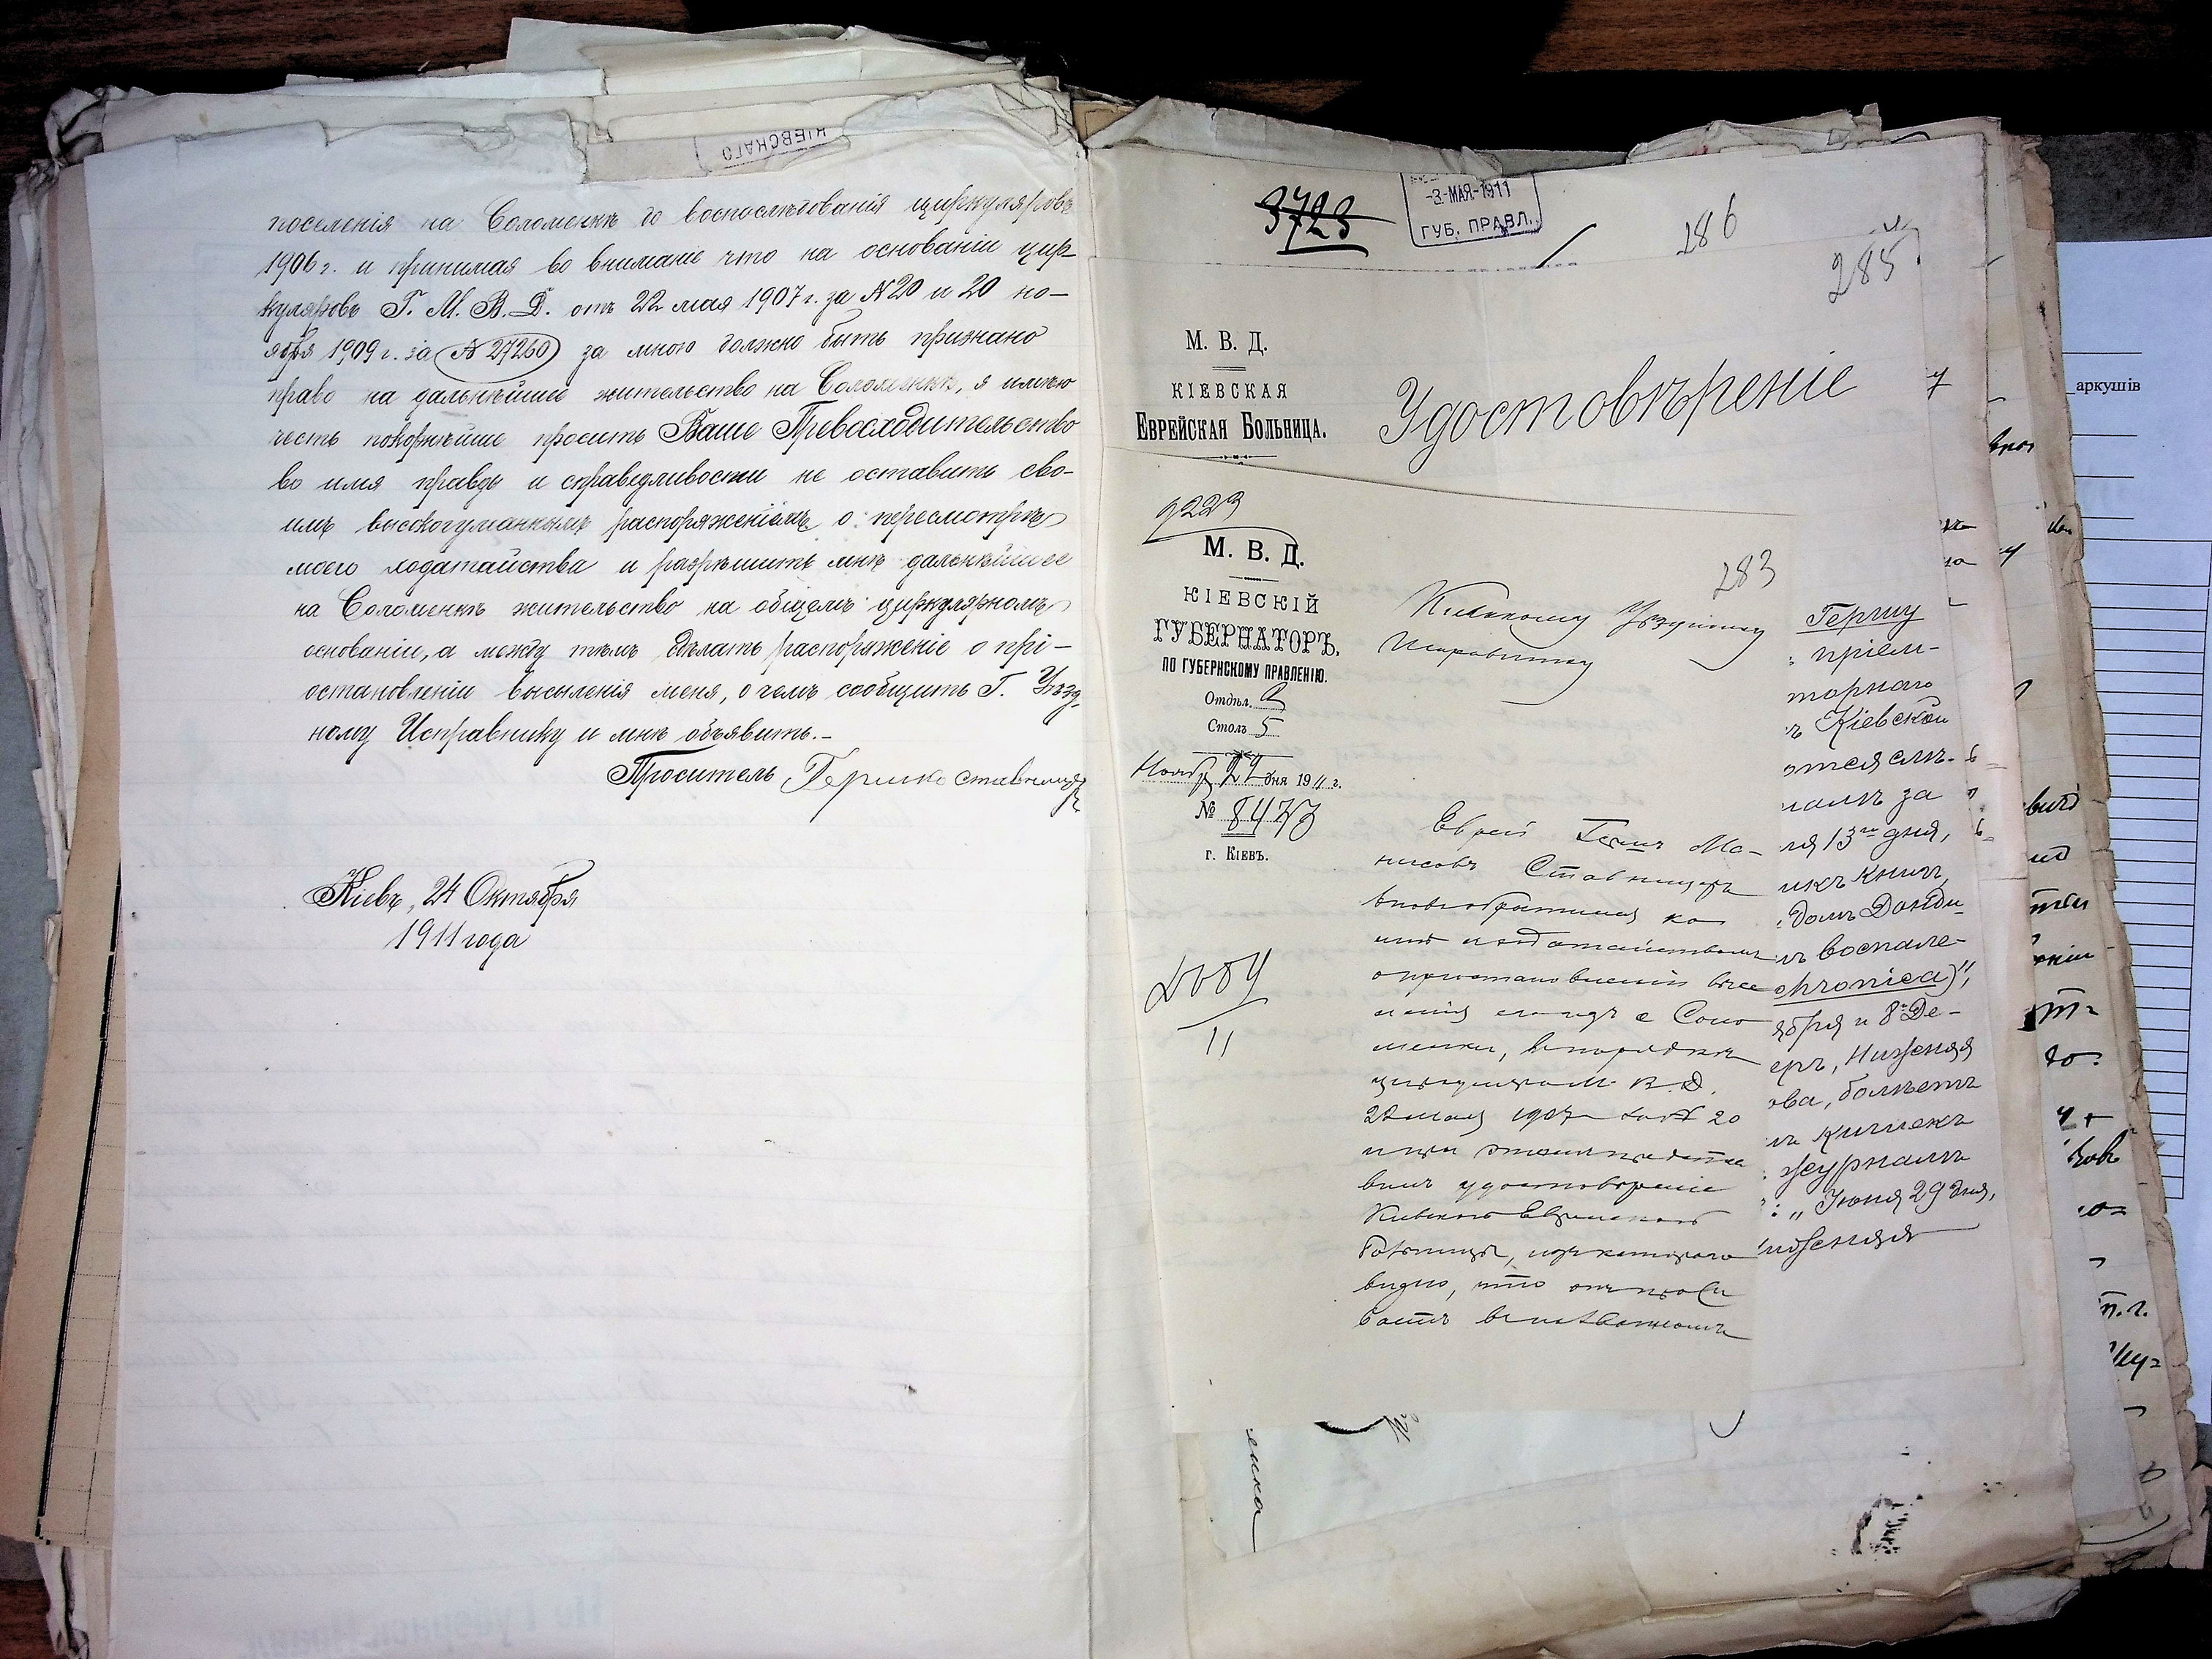 КІЕВСКАГО
поселенія на Соломенкѣ до воспослѣдованія циркуляровъ
1906 г. и принимая во вниманіе что на основаніи цир-
куляровъ Г. М. В. Д. отъ 22 мая 1907 г. за N 20 и 20 но-
ября 1909 г. за N 27260 за мною должно быть признано
право на дальнѣйшее жительство на Соломенкѣ, я имѣю
честь покорнѣйше просить Ваше Превосходительство
во имя правды и справедливости не оставить сво-
имъ высокогуманнымъ распоряженіемъ о пересмотрѣ
моего ходатайства и разрѣшить мнѣ дальнѣйшее
на Соломенкѣ жительство на общемъ циркулярномъ
основаніи, а между тѣмъ сдѣлать распоряженіе о прі-
остановленіи выселенія меня, о чемъ сообщить Г. Уѣзд-
ному Исправнику и мнѣ объявить.-
Проситель Гершко Ставницеръ
Кіевъ, 24 Октября
1911 года
3723
-3-МАЯ-1911
ГУБ. ПРАВЛ.
286
285
М. В. Д.
КІЕВСКАЯ
ЕВРЕЙСКАЯ БОЛЬНИЦА.
Удостовѣреніе
9223
М. В. Д.
КІЕВСКІЙ
ГУБЕРНАТОРЪ.
ПО ГУБЕРНСКОМУ ПРАВЛЕНІЮ.
Отдѣл. 2
Столъ 5
Ноябр 24 дня 1911 г.
№ 8473
г. КІЕВЪ.
11
283
Кіевскому Уѣздному
Исправнику
Еврей Гершъ Мо-
нисовъ Ставницеръ
вновь обратился ко
мнѣ съ ходатайствомъ
о пріостановленіи высе
ленія его изъ с Соло
менки, въ порядкѣ
циркуляра М. В. Д.
22 мая 1907 г. за N 20
и при этомъ предста
вилъ удостовѣреніе
Кіевской Еврейской
больницы, изъ котораго
видно, что онъ прожи
ваетъ въ
Гершу
пріем-
торнаго
ъ Кіевской
ются слѣ-
за
ля 13го дня,
книгъ,
домъ Донди-
воспале-
chronica)",
ября и 8 Де-
еръ, Нижняя
ова, болѣетъ
кишекъ
журналъ
: „ Іюня 29 дня,
ижняя
аркушів
п. г.